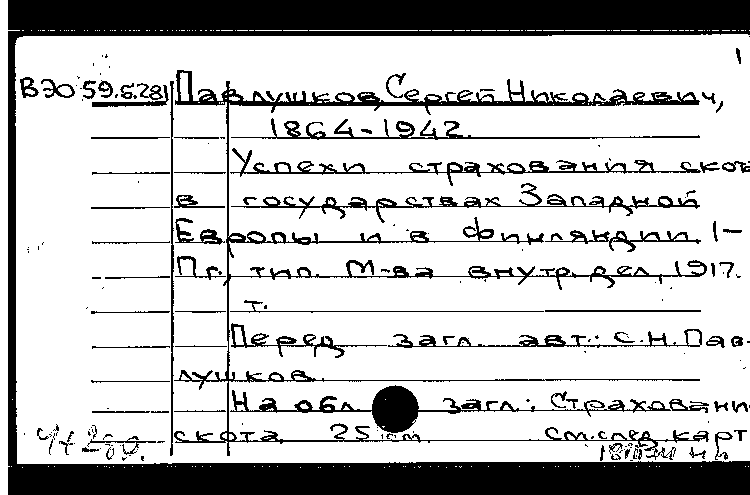 1
ВЭО 59.5.281 Павлушков, Сергей Николаевич,
1864-1942.
Успехи страхования скот
в государствах Западной
Европы и в Финляндии. 1-
Пг., тип. М-ва внутр.дел, 1917.
т.
Перед загл. авт.: С.Н. Пав-
лушков.
На обл. загл.: Страховани
скота. 25 см. см.след.карт